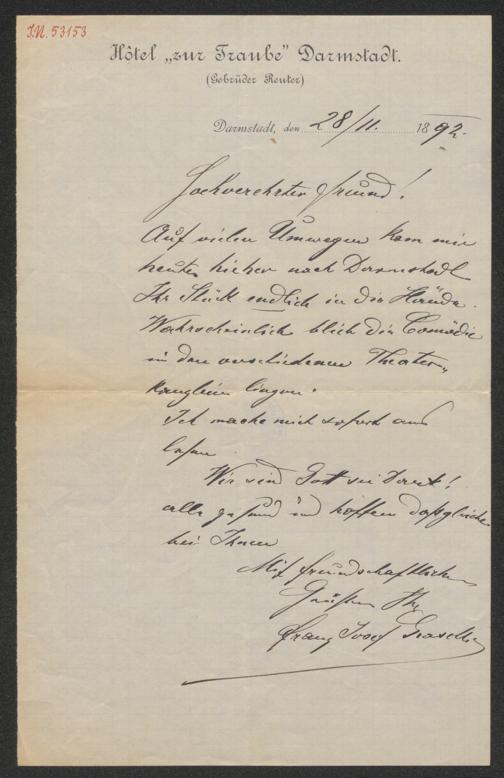 J.N. 53153
Hôtel „zur Traube” Darmstadt.
(Gebrüder Reuter)
Darmstadt, den 28/11. 1892.
Hochverehrter Freund!
Auf vielen Umwegen kam mir
heute hieher nach Darmstadt
Ihr Stück endlich in die Hände.
Wahrscheinlich blieb die Comödie
in den verschiedenen Theater„
kanzleien liegen.
Ich mache mich sofort ans
lesen.
Wir sind Gott sei Dank!
alle gesund und hoffen dasgleiche
bei Ihnen
Mit freundschaftlichen
Grüßen Ihr
Franz Josef Graselli